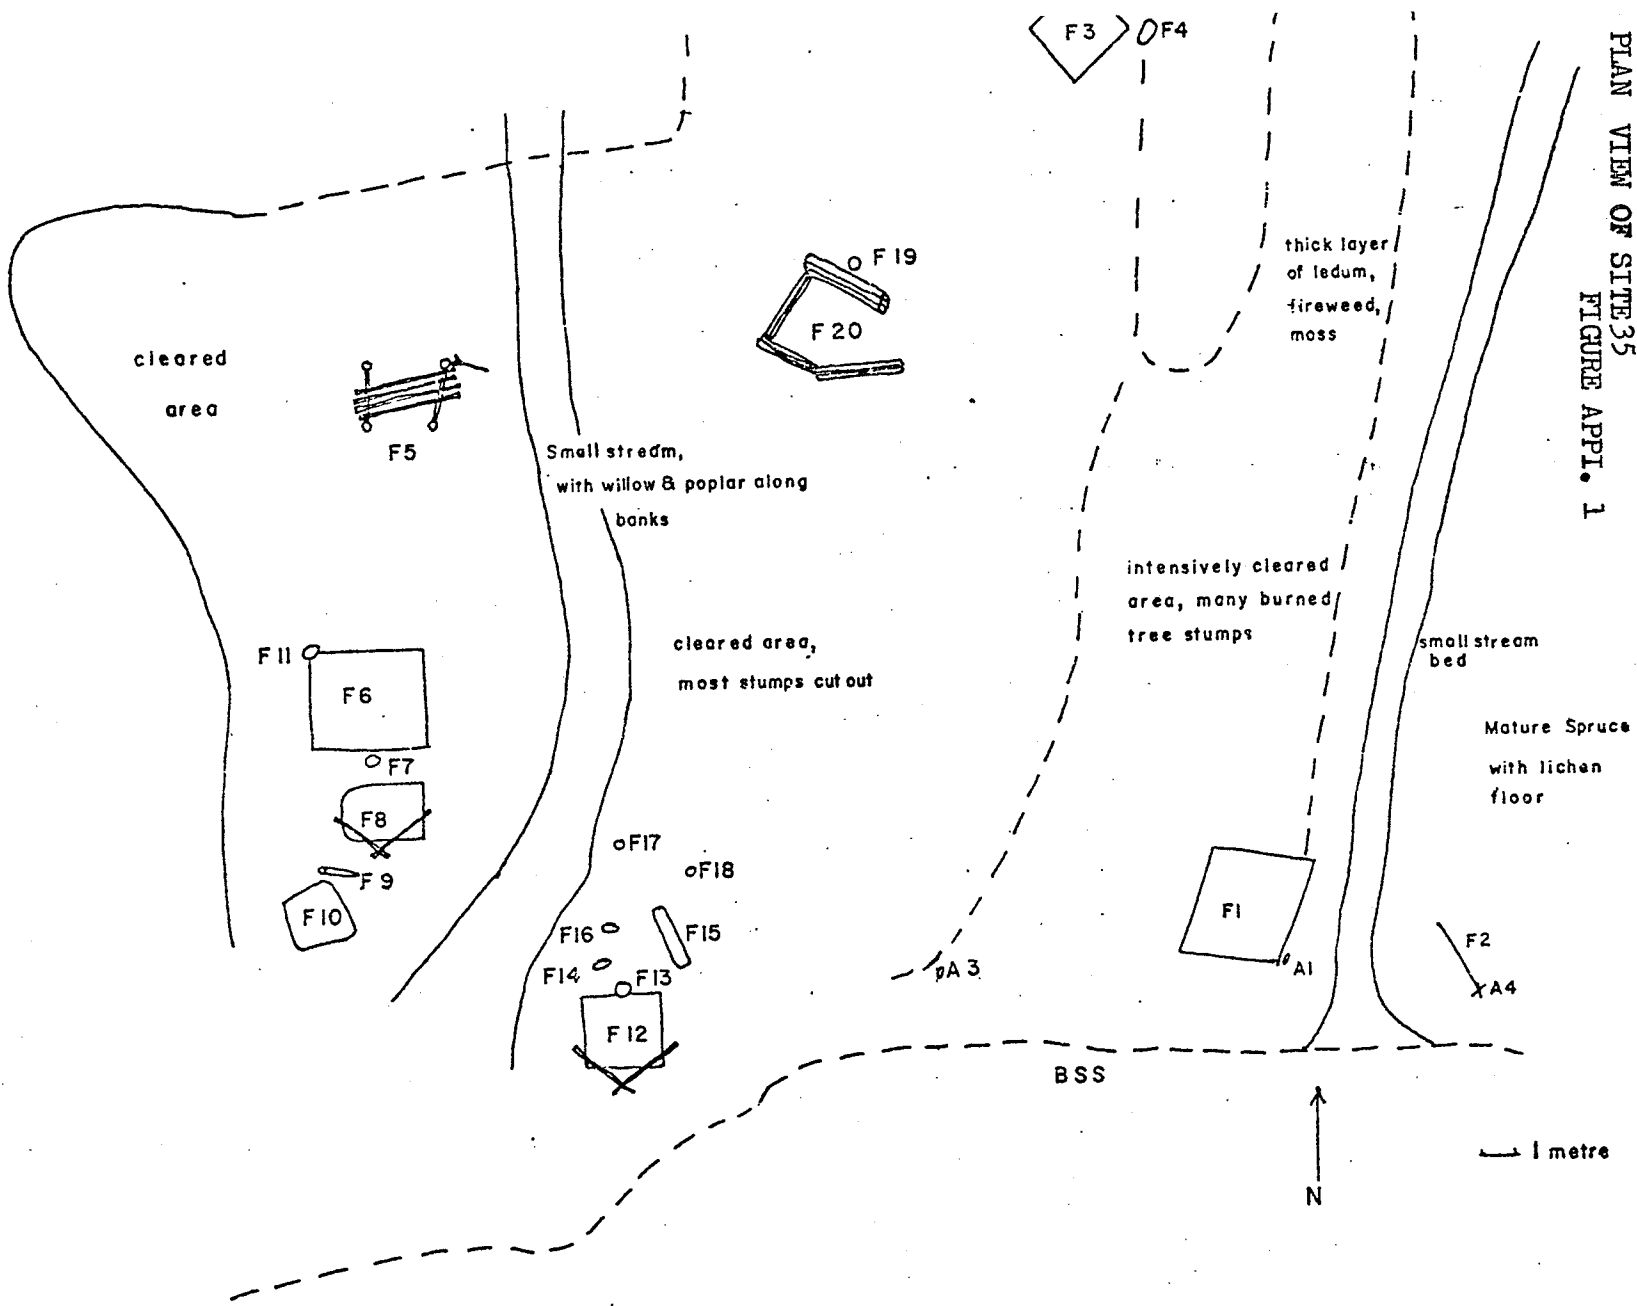 PLAN VIEW OF SITE 35
FIGURE APPI. 1
F3
F4
F19
F20
thick layer
of ledum,
fireweed,
moss
cleared
area
F5
Small stream,
with willow & poplar along
banks
intensively cleared
area, many burned
tree stumps
cleared area,
most stumps cut out
small stream
bed
Mature Spruce
with lichen
floor
F11
F6
F7
F8
F9
F10
F17
F18
F16
F15
F14
F13
F12
A3
F1
A1
F2
A4
BSS
N
1 metre